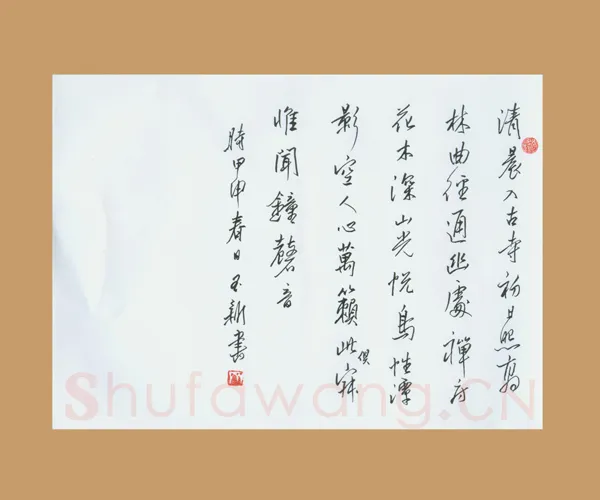 清晨入古寺初日照高
林曲徑通幽處禪房
花木深山光悅鳥性潭
影空人心萬籟此俱寂
惟聞鐘磬音
時甲申春日玉新書
Shufawang.CN